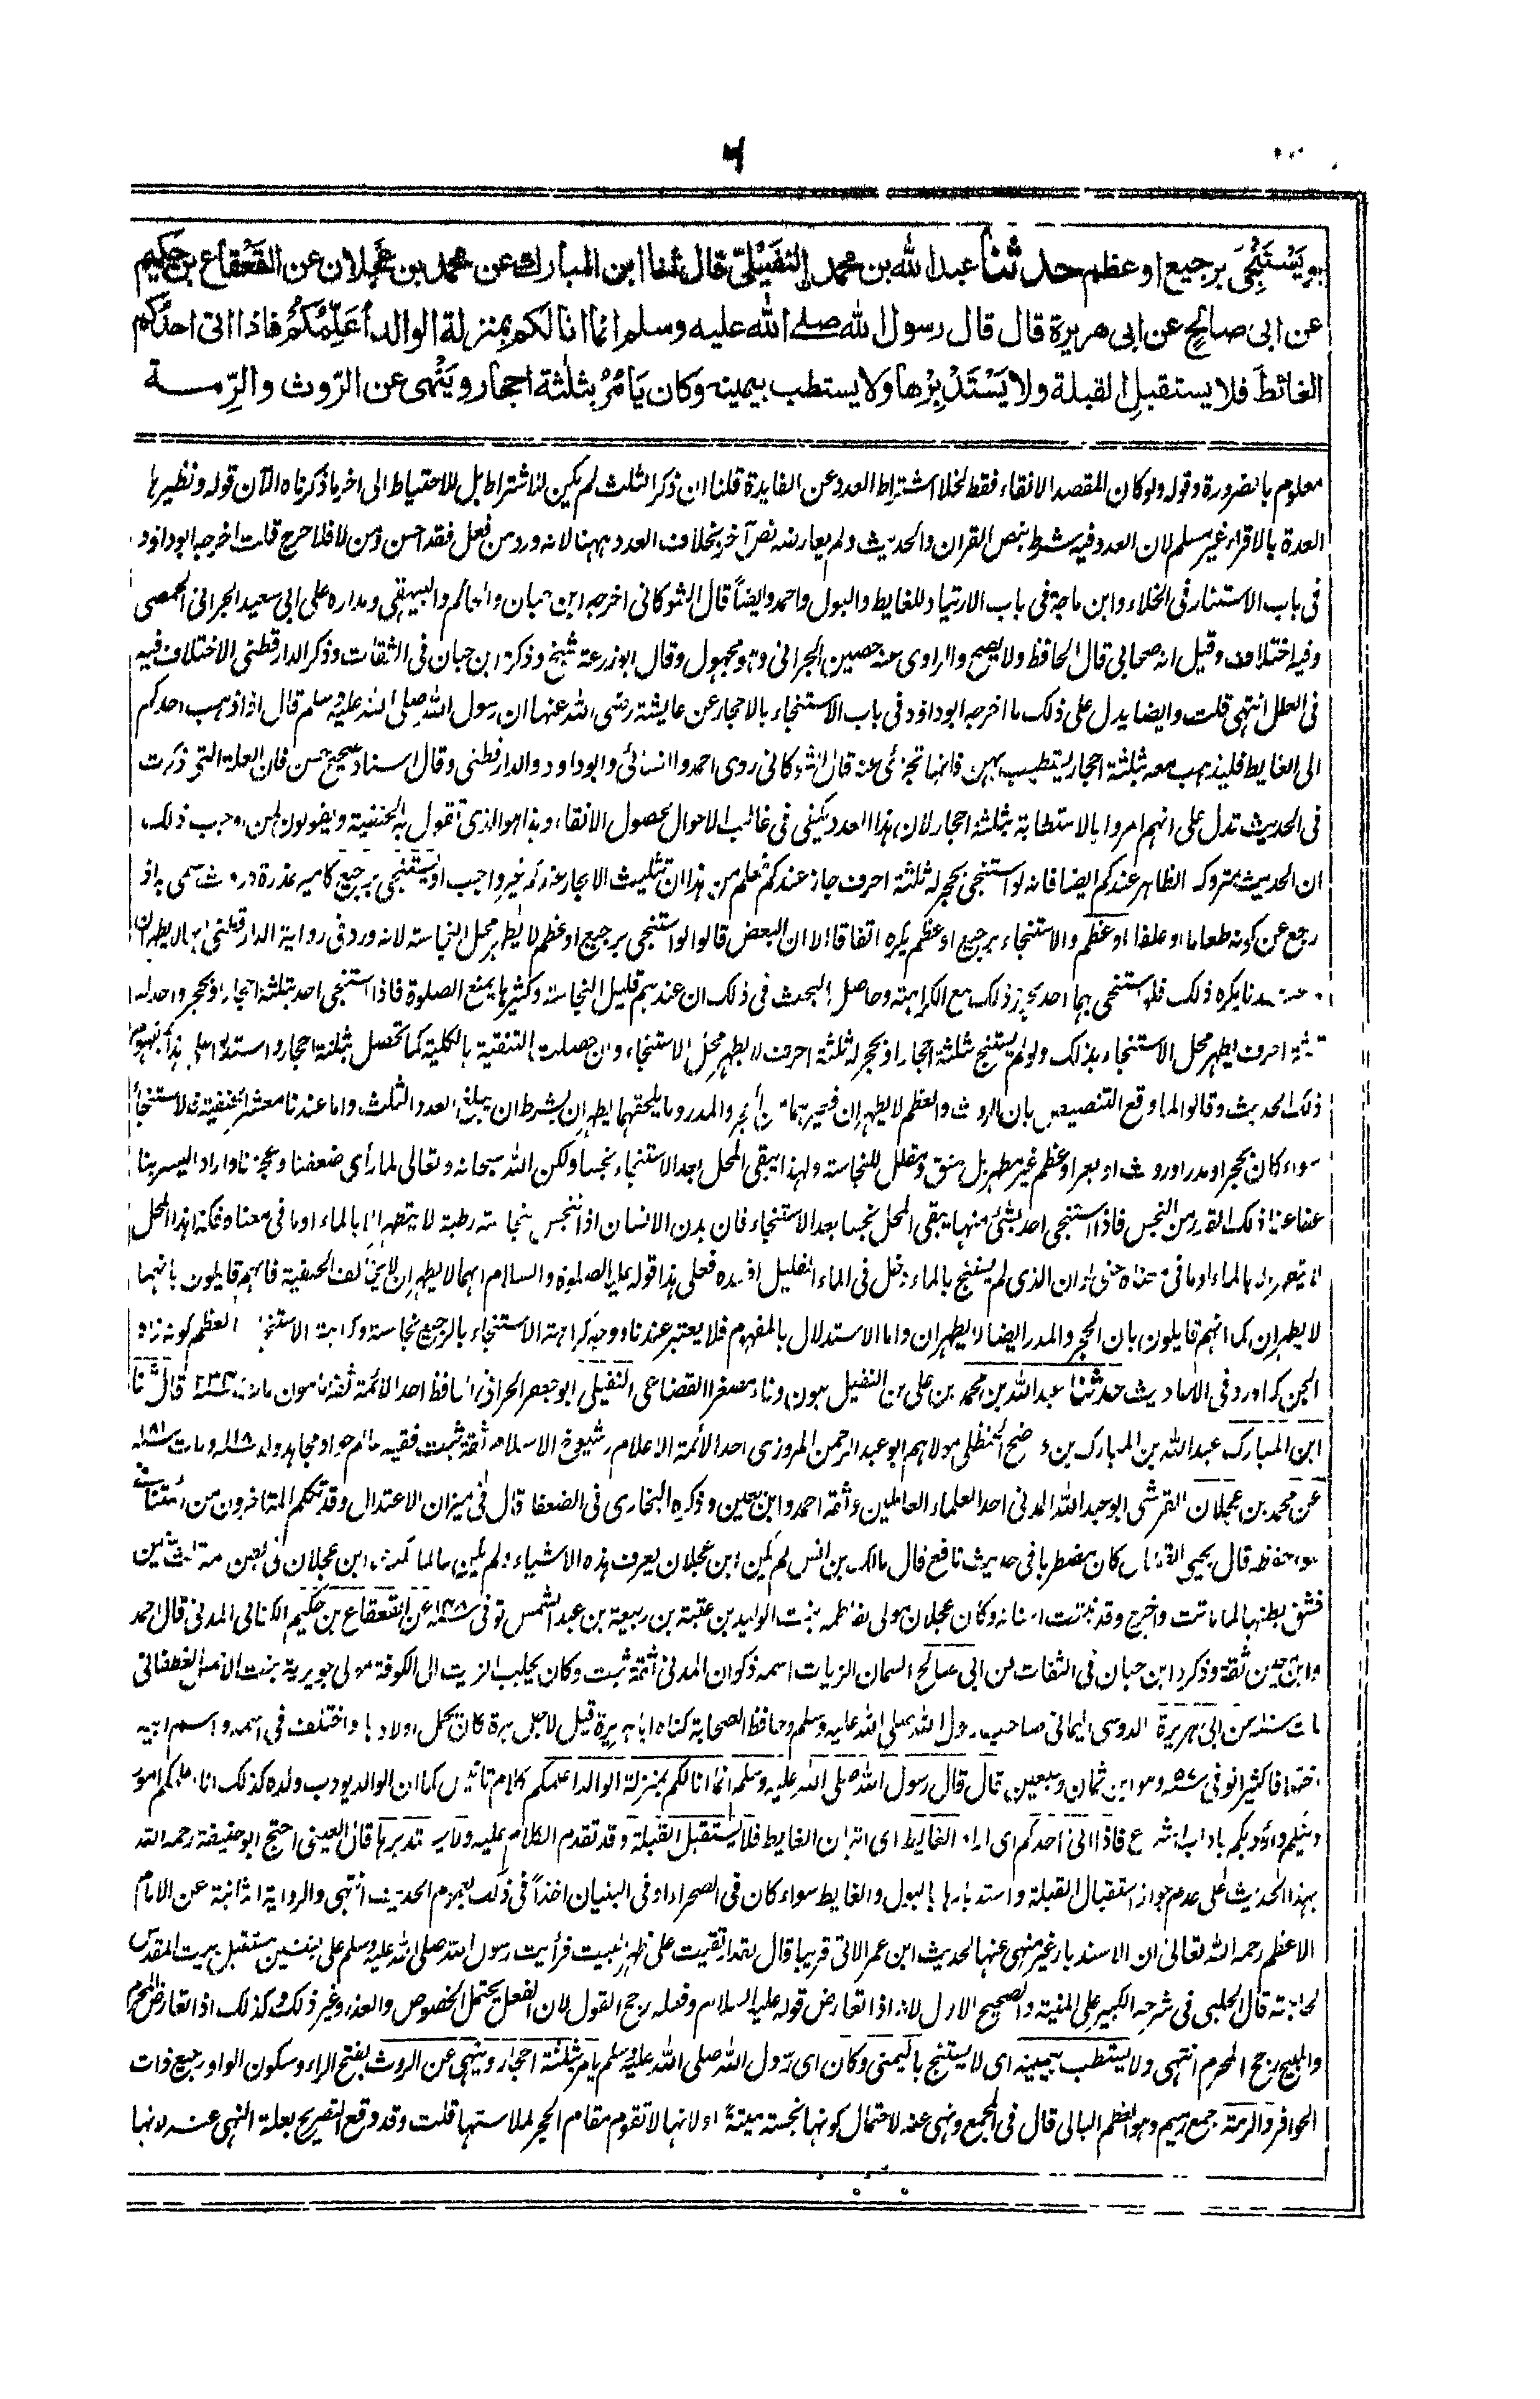 ٦
او يَسْتَنْجِىَ برجيع او عظم حدثنا عبد الله بن محمد النُّفَيْلِىّ قال ثنا ابن المبارك عن محمد بن عجلان عن القَعْقاع بن حكيم
عن ابى صالح عن ابى هريرة قال قال رسول الله صلے الله عليه وسلم انما انا لكم بمنزلة الوالد أُعَلِّمُكُمْ فاذا اتى احدُكم
الغائطَ فلا يستقبلِ القبلة ولا يَسْتَدْبِرْها ولا يستطب بيمينه وكان يَأمُرُ بثلثة احجار ويَنْهٰى عن الرّوث والرِّمــة
معلوم بالضرورة وقوله ولو كان المقصد الانقاء فقط لخلا اشتراط العدد عن الفايدة قلنا ان ذكر الثلث لم يكن للاشتراط بل للاحتياط الى اخر ما ذكرناه الآن قوله ونظيرها
العدة بالاقراء غير مسلم لان العدد فيه شرط بنص القران والحديث ولم يعارضه نص آخر بخلاف العدد ههنا لانه ورد من فعل فقد احسن ومن لا فلا حرج قلت اخرجه ابو داؤد
فى باب الاستتار فى الخلاء وابن ماجة فى باب الارتياد للغايط والبول واحمد وايضاً قال الشوكانى اخرجه ابن حبان والحاكم والبيهقى ومداره على ابى سعيد الحبرانى الحمصى
وفيه اختلاف وقيل انه صحابى قال الحافظ ولا يصح والراوى عنه حصين الحبرانى وهو مجهول وقال ابو زرعة شيخ وذكره ابن حبان فى الثقات وذكر الدارقطنى الاختلاف فيه
فى العلل انتهى قلت وايضا يدل على ذلك ما اخرجه ابو داؤد فى باب الاستنجاء بالاحجار عن عايشة رضى الله عنها ان رسول الله صلى الله عليه وسلم قال اذا ذهب احدكم
الى الغايط فليذهب معه بثلثة احجار يستطيب بهن فانها تجزئ عنه قال الشوكانى روى احمد والنسائى وابو داود والدارقطنى وقال اسناده صحيح حسن فان العلة التى ذكرت
فى الحديث تدل على انهم امروا بالاستطابة بثلثة احجار لان هذا العدد يكفى فى غالب الاحوال لحصول الانقاء وهذا هو الذى تقول به الحنفية ويقولون لمن اوجب ذلك
ان الحديث متروك الظاهر عندكم ايضا فانه لو استنجى بحجر له ثلثة احرف جاز عندكم فعلم من هذا ان تثليث الاحجار عندكم غير واجب او يستنجى برجيع كامير عذرة وروث سمى به اذ
رجع عن كونه طعاما او علفا او عظم والاستنجاء برجيع او عظم يكره اتفاقا الا ان البعض قالوا لو استنجى برجيع او عظم لا يطهر محل النجاسة لانه ورد فى رواية الدارقطنى انهما لا يطهران
وعندنا يكره ذلك فلو استنجى بهما احد يجوز ذلك مع الكراهية وحاصل البحث فى ذلك ان عندهم قليل النجاسة وكثيرها يمنع الصلوة فاذا استنجى احد بثلثة احجار او بحجر واحد له
ثلثة احرف يطهر محل الاستنجاء بذلك ولو لم يستنج بثلثة احجار او بحجر له ثلثة احرف لا يطهر محل الاستنجاء وان حصلت التنقية بالكلية كما تحصل بثلثة احجار واستدلوا على هذا بمفهوم
ذلك الحديث وقالوا لما وقع التنصيص بان الروث والعظم لا يطهران فغيرهما من الحجر والمدر وما يلحقهما يطهران بشرط ان يبلغ العدد الثلث واما عندنا معشر الحنفية فالاستنجاء
سواء كان بحجر او مدر او روث او بعر او عظم غير مطهر بل منق ومقلل للنجاسة ولهذا يبقى المحل بعد الاستنجاء نجسا ولكن الله سبحانه وتعالى لما رأى ضعفنا وعجزنا واراد اليسر بنا
عفا عنا ذلك القدر من النجس فاذا استنجى احد بشئ منها يبقى المحل نجسا بعد الاستنجاء فان بدن الانسان اذا تنجس بنجاسة رطبة لا يتطهر الا بالماء او ما فى معناه فكذا هذا المحل
لا يتطهر الا بالماء او ما فى معناه حتى ان الذى لم يستنج بالماء دخل فى الماء القليل افسده فعلى هذا قوله عليه الصلوة والسلام انهما لا يطهران لا يخالف الحنفية فانهم قايلون بانهما
لا يطهران كما انهم قايلون بان الحجر والمدر ايضا لا يطهران واما الاستدلال بالمفهوم فلا يعتبر عندنا ووجه كراهة الاستنجاء بالرجيع نجاسة وكراهة الاستنجاء العظم كونه زاد
الجن كما ورد فى الاحاديث حدثنا عبد الله بن محمد بن على بن النفيل بنون وفاء مصغرا القضاعى النفيلى ابو جعفر الحرانى الحافظ احد الائمة ثقة مامون مات ٢٣٤ قال ثنا
ابن المبارك عبد الله بن المبارك بن واضح الحنظلى مولاهم ابو عبد الرحمن المروزى احد الائمة الاعلام وشيوخ الاسلام ثقة ثبت فقيه عالم جواد مجاهد ولد ١١٨ ومات ١٨١
عن محمد بن عجلان القرشى ابو عبد الله المدنى احد العلماء العاملين وثقه احمد وابن معين وذكره البخارى فى الضعفا قال فى ميزان الاعتدال وقد تكلم المتاخرون من ائمتنا فى
سوء حفظه قال يحيى القطان كان مضطربا فى حديث نافع قال مالك بن انس لم يكن ابن عجلان يعرف هذه الاشياء ولم يكن عالما مكث ابن عجلان فى بطن امه ثلث سنين
فشق بطنها لما ماتت واخرج وقد نبتت اسنانه وكان عجلان مولى لفاطمة بنت الوليد بن عتبة بن ربيعة بن عبد الشمس توفى ١٤٨ عن القعقاع بن حكيم الكنانى المدنى قال احمد
وابن معين ثقة وذكره ابن حبان فى الثقات عن ابى صالح السمان الزيات اسمه ذكوان المدنى ثقة ثبت وكان يجلب الزيت الى الكوفة مولى جويرية بنت الاحمس الغطفانى
مات سنة عن ابى هريرة الدوسى اليمانى صاحب رسول الله صلى الله عليه وسلم وحافظ الصحابة كناه ابا هريرة قيل لاجل هرة كان يحمل اولادها واختلف فى اسمه واسم ابيه
اختلافا كثيرا توفى ٥٧ وهو ابن ثمان وسبعين قال قال رسول الله صلى الله عليه وسلم انما انا لكم بمنزلة الوالد اعلمكم كلام تانيس كما ان الوالد يودب ولده كذلك انا اعلمكم امور
دينكم واؤدبكم باداب الشرع فاذا اتى احدكم اى اراد الغايط اى اتيان الغايط فلا يستقبل القبلة وقد تقدم الكلام عليه ولا يستدبرها قال العينى احتج ابو حنيفة رحمه الله
بهذا الحديث على عدم جواز استقبال القبلة واستدبارها بالبول والغايط سواء كان فى الصحراء او فى البنيان اخذاً فى ذلك بعموم الحديث انتهى والرواية الثانية عن الامام
الاعظم رحمه الله تعالى ان الاستدبار غير منهى عنها لحديث ابن عمر الاتى قريبا قال لقد ارتقيت على ظهر البيت فرأيت رسول الله صلى الله عليه وسلم على لبنتين مستقبل بيت المقدس
لحاجته قال الحلبى فى شرحه الكبير على المنية والصحيح الاول لانه اذا تعارض قوله عليه السلام وفعله رجح القول لان الفعل يحتمل الخصوص والعذر وغير ذلك وكذلك اذا تعارض المحرم
والمبيح رجح المحرم انتهى ولا يستطب بيمينه اى لا يستنج باليمنى وكان اى رسول الله صلى الله عليه وسلم يامر بثلثة احجار وينهى عن الروث بفتح الراء وسكون الواو رجيع ذات
الحوافر والرمة جمع رميم وهو العظم البالى قال فى المجمع ونهى عنه لاحتمال كونها نجسة ميتة او لانها لا تقوم مقام الحجر لملاستها قلت وقد وقع التصريح بعلة النهى عنه لانها